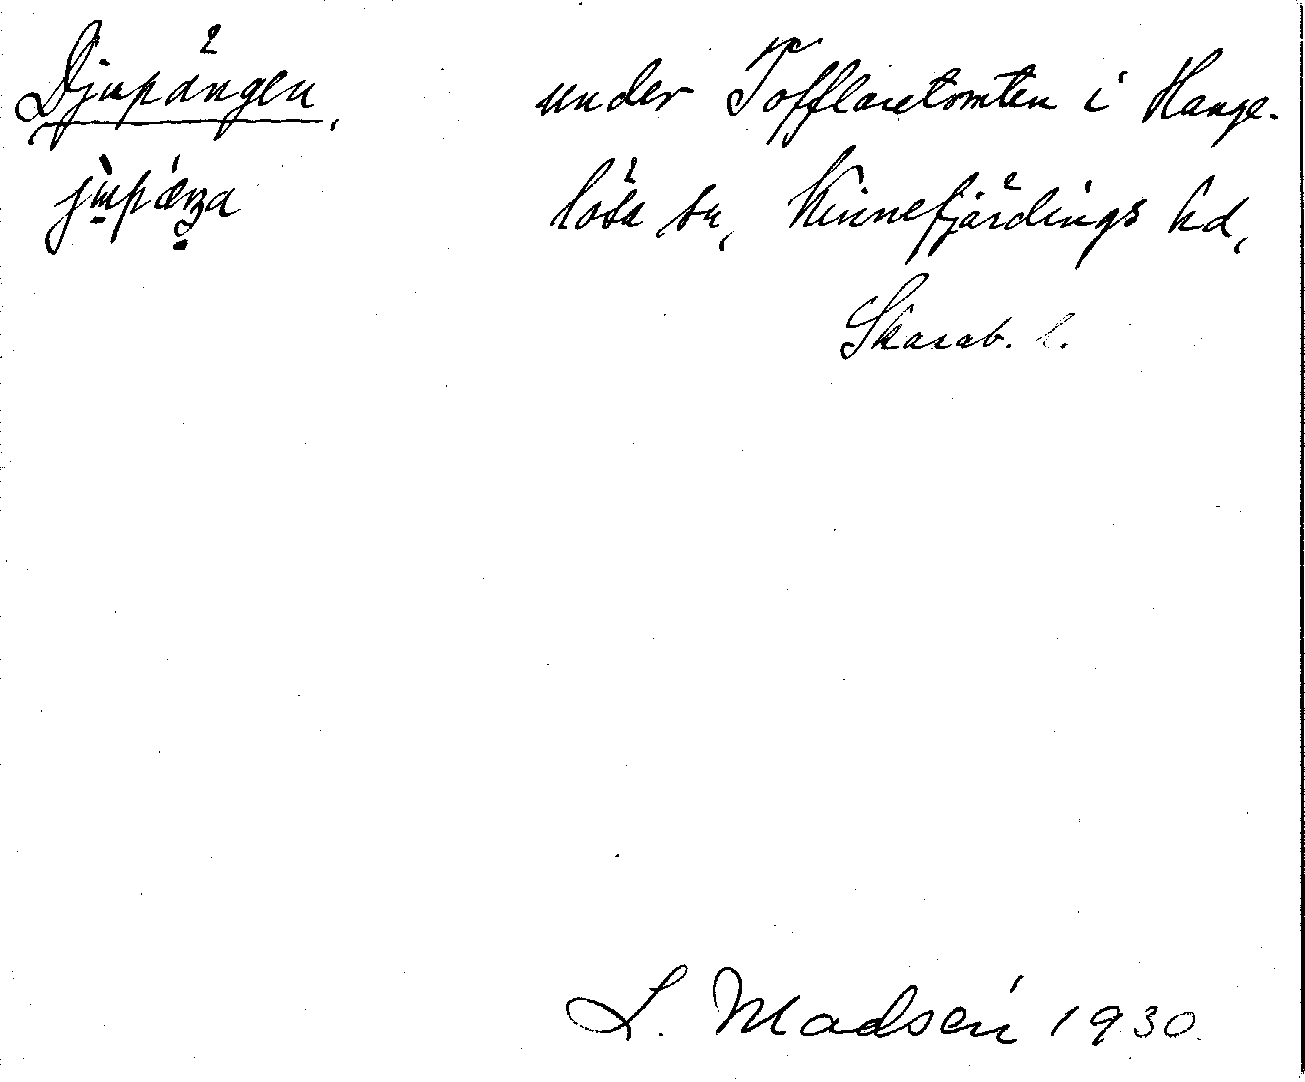 Djupängen, under Tofflaretomten i Hange-
lösa sn, Kinnefjärdings hd,
Skarab. l.
L. Madsén 1930.